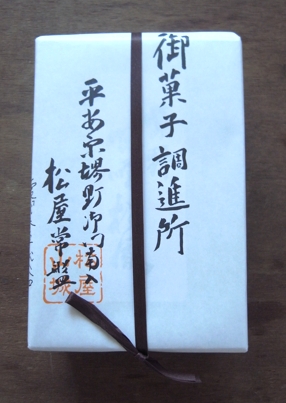 御菓子調進所
平安京堺町御門南入
松屋常盤